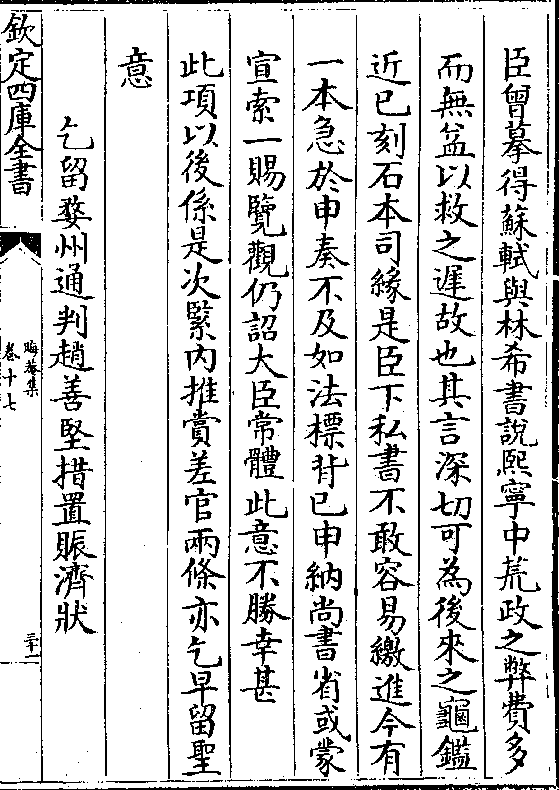 臣曾摹得蘇軾與林希書說熙寧中荒政之弊費多
而無益以救之遲故也其言深切可為後來之龜鑑
近已刻石本司緣是臣下私書不敢容易繳進今有
一本急於申奏不及如法標背已申納尚書省或蒙
宣索一賜覽觀仍詔大臣常體此意不勝幸甚
此項以後係是次緊內推賞差官兩條亦乞早留聖
意
乞留婺州通判趙善堅措置賑濟狀
欽定四庫全書
晦菴集
卷十七
三十一